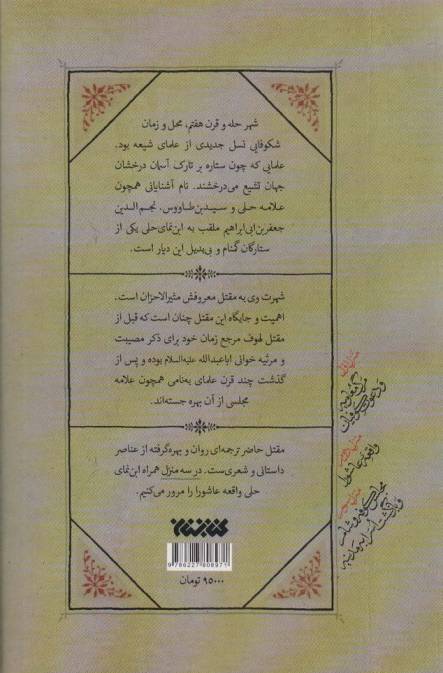 شهر حله و قرن هفتم، محل و زمان
شکوفایی نسل جدیدی از علمای شیعه بود.
علمایی که چون ستاره بر تارک آسمان درخشان
جهان تشیع می‌درخشند. نام آشنایانی همچون
علامه حلی و سیدبن‌طاووس. نجم‌الدین
جعفربن‌ابی‌ابراهیم ملقب به ابن‌نمای‌حلی یکی از
ستارگان گمنام و بی‌بدیل این دیار است.
شهرت وی به مقتل معروفش مثیرالاحزان است.
اهمیت و جایگاه این مقتل چنان است که قبل از
مقتل لهوف مرجع زمان خود برای ذکر مصیبت
و مرثیه خوانی اباعبدالله علیه‌السلام بوده و پس از
گذشت چند قرن علمای به‌نامی همچون علامه
مجلسی از آن بهره جسته‌اند.
مقتل حاضر ترجمه‌ای روان و بهره‌گرفته از عناصر
داستانی و شعری‌ست. در سه منزل همراه ابن‌نمای
حلی واقعه عاشورا را مرور می‌کنیم.
9 786227 808971
۹۵۰۰۰ تومان
واقعه عاشورا